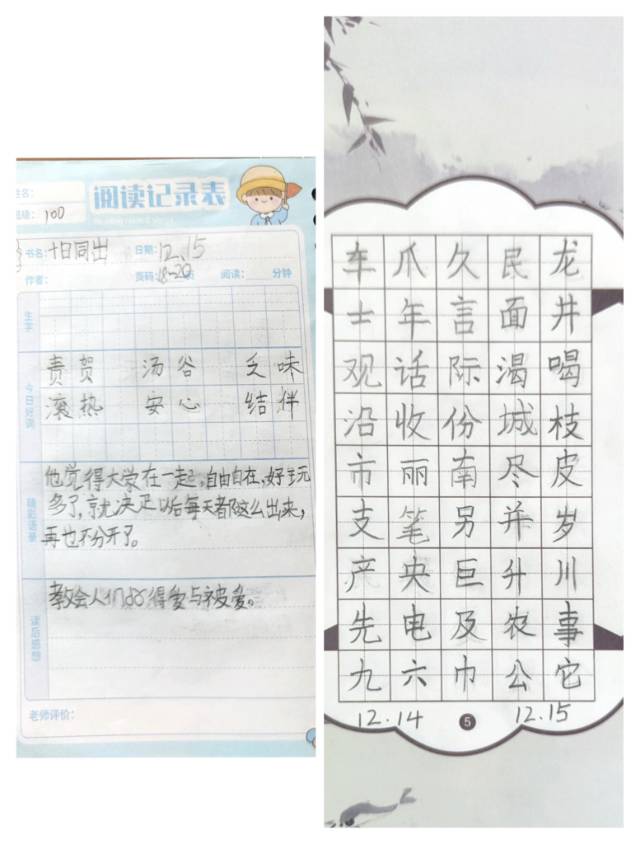 姓名：
班级：100
阅读记录表
书名：十日同出 日期：12.15
作者： 页码：18-20页 阅读： 分钟
生字
今日好词
责贺 汤谷 乏味
滚热 安心 结伴
精彩语录
他觉得大家在一起，自由自在，好玩
多了，就决定以后每天都这么出来，
再也不分开了。
读后感想
教会人们如何得爱与被爱。
老师评价：
车 爪 久 民 龙
士 年 言 面 井
观 话 际 渴 喝
沿 收 份 城 枝
市 丽 南 尽 皮
支 笔 另 并 岁
产 央 巨 升 川
先 电 及 农 事
九 六 巾 公 它
12.14 5 12.15